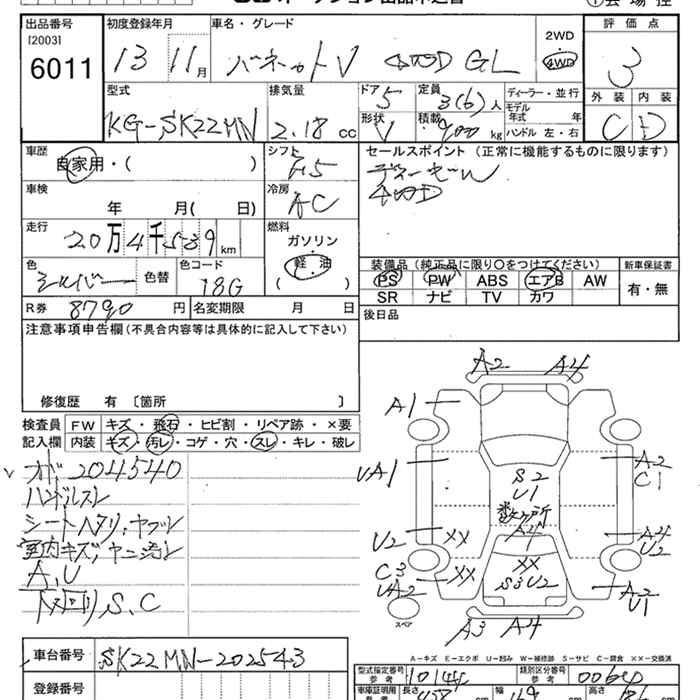 出品番号
[2003]
6011
初度登録年月
13 11月
車名・グレード
バネットV 4WD GL
2WD
4WD
評価点
3
外装 内装
C D
型式
KG-SK22MN
排気量
2.18 cc
ドア
5
形状
V
定員
3(6)人
積載
900 kg
ディーラー・並行
モデル年式 年
ハンドル 左・右
車歴
自家用・( )
シフト
F5
セールスポイント (正常に機能するものに限ります)
ディーゼル
4WD
車検
年 月( 日)
冷房
AC
走行
20万4千539km
燃料
ガソリン
軽油
( )
色
シルバー 色替
色コード
18G
装備品 (純正品に限り○をつけてください)
PS PW ABS エアB AW
SR ナビ TV カワ
新車保証書
有・無
R券 8790円
名変期限 月 日
後日品
注意事項申告欄(不具合内容等は具体的に記入して下さい)
修復歴 有 〔箇所 〕
検査員記入欄
FW キズ・飛石・ヒビ割・リペア跡・×要
内装 キズ・汚レ・コゲ・穴・スレ・キレ・破レ
204540
ハンドルスレ
シートヘタリ、ヤブレ
室内キズ、ヤニ汚レ
A、U
下回リS、C
A2 A4
A1
UA1
A2
C1
S2
U1
数ヶ所
A4
U2 XX
A4
U2
C3 XX
UA2
XX
S3 U2
A2
U1
スペア
A3 A4
A-キズ E-エクボ U-凹み W-補修跡 S-サビ C-腐食 ××-交換済
車台番号 SK22MN-202543
登録番号
型式指定番号 参考
類別区分番号 参考
車庫証明用
長さ
幅
高さ